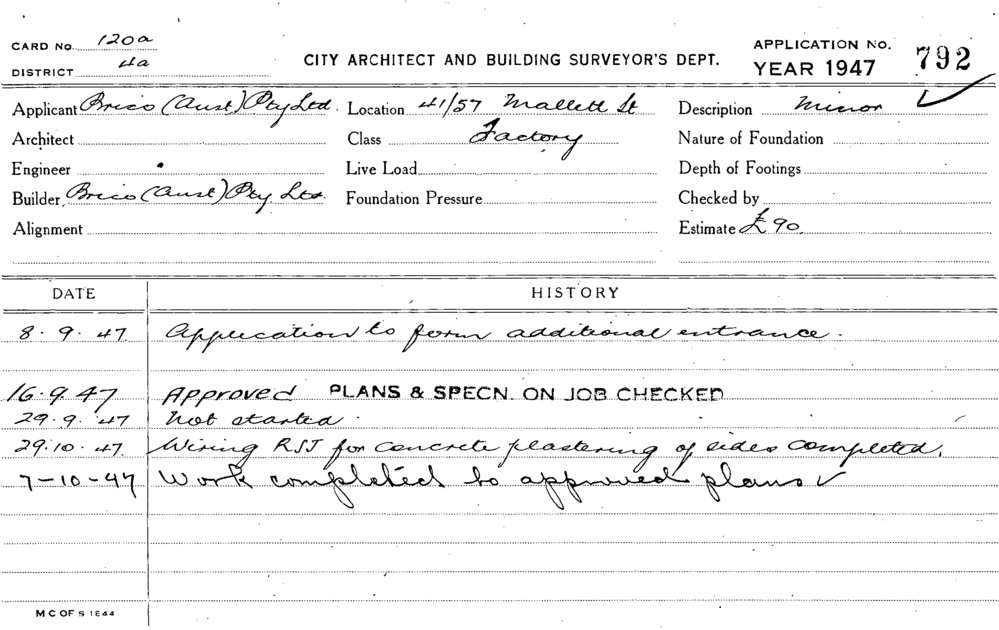 CARD No. 120a
DISTRICT 4a
CITY ARCHITECT AND BUILDING SURVEYOR'S DEPT.
APPLICATION No. 792
YEAR 1947
Applicant Brico (Aust) Pty Ltd. Location 41/57 Mallett St Description Minor
Architect Class Factory Nature of Foundation
Engineer Live Load Depth of Footings
Builder Brico (Aust) Pty. Ltd. Foundation Pressure Checked by
Alignment Estimate £90.
DATE HISTORY
8.9.47 Application to form additional entrance.
16.9.47 Approved PLANS & SPECN. ON JOB CHECKED
29.9.47 Not started.
29.10.47 Wiring RSJ for concrete plastering of sides completed.
7-10-47 Work completed to approved plans ✓
M C OF S 1844